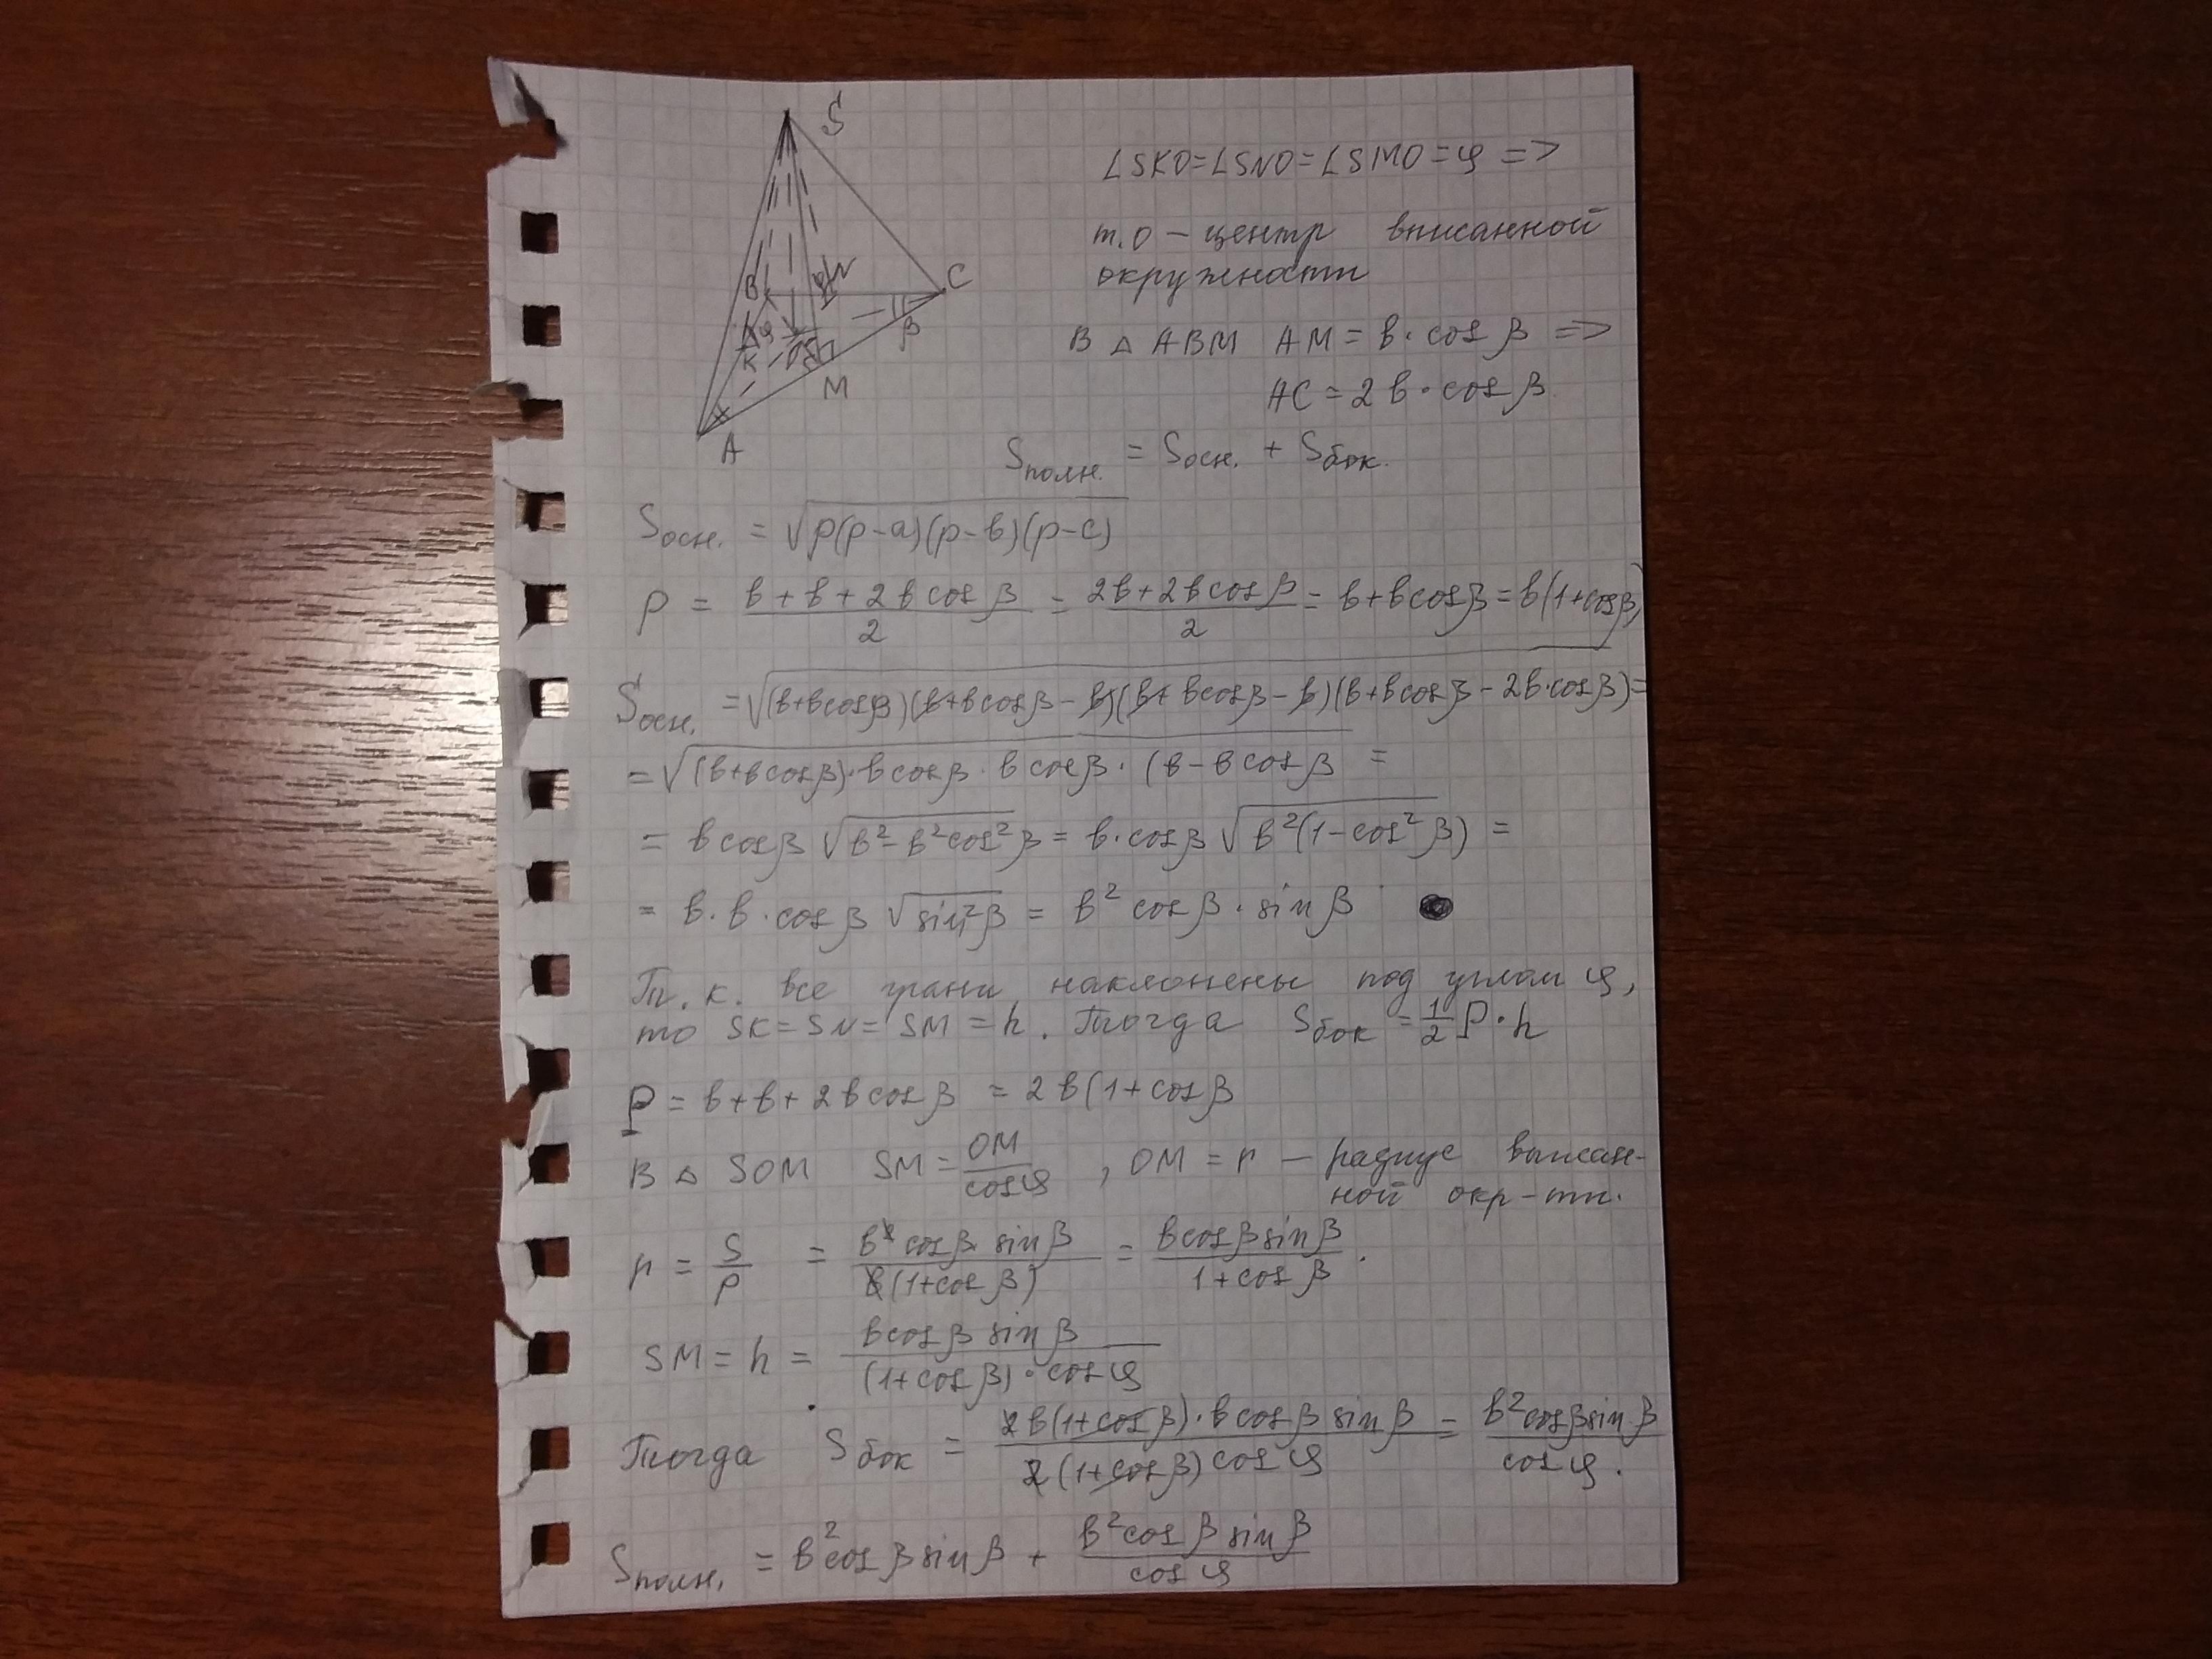 S
B
C
N
φ
β
K
O
M
A
∠SKO=∠SNO=∠SMO=φ =>
т.О – центр вписанной
окружности
В △ ABM AM = в·cos β =>
AC = 2в·cos β
Sполн. = Sосн. + Sбок.
Sосн. = √(p(p-a)(p-в)(p-c))
p = (в+в+2в cos β)/2 = (2в+2в cos β)/2 = в+в cos β = в(1+cos β)
Sосн. = √((в+в cos β)(в+в cos β - в)(в+в cos β - в)(в+в cos β - 2в·cos β)) =
= √((в+в cos β)·в cos β · в cos β · (в-в cos β) =
= в cos β √(в²-в²cos²β) = в·cos β √(в²(1-cos²β)) =
= в·в·cos β √(sin²β) = в² cos β · sin β
Т. к. все грани наклонены под углом φ,
то SK=SN=SM=h. Тогда Sбок = 1/2 P·h
P = в+в+2в cos β = 2в(1+cos β
В △ SOM SM = OM/cos φ , OM = r – радиус вписан-
ной окр-ти.
r = S/p = (в² cos β sin β)/(в(1+cos β)) = (в cos β sin β)/(1+cos β).
SM = h = (в cos β sin β)/((1+cos β)·cos φ)
Тогда Sбок = (2в(1+cos β)·в cos β sin β)/(2(1+cos β) cos φ) = (в² cos β sin β)/(cos φ).
Sполн. = в² cos β sin β + (в² cos β sin β)/(cos φ)